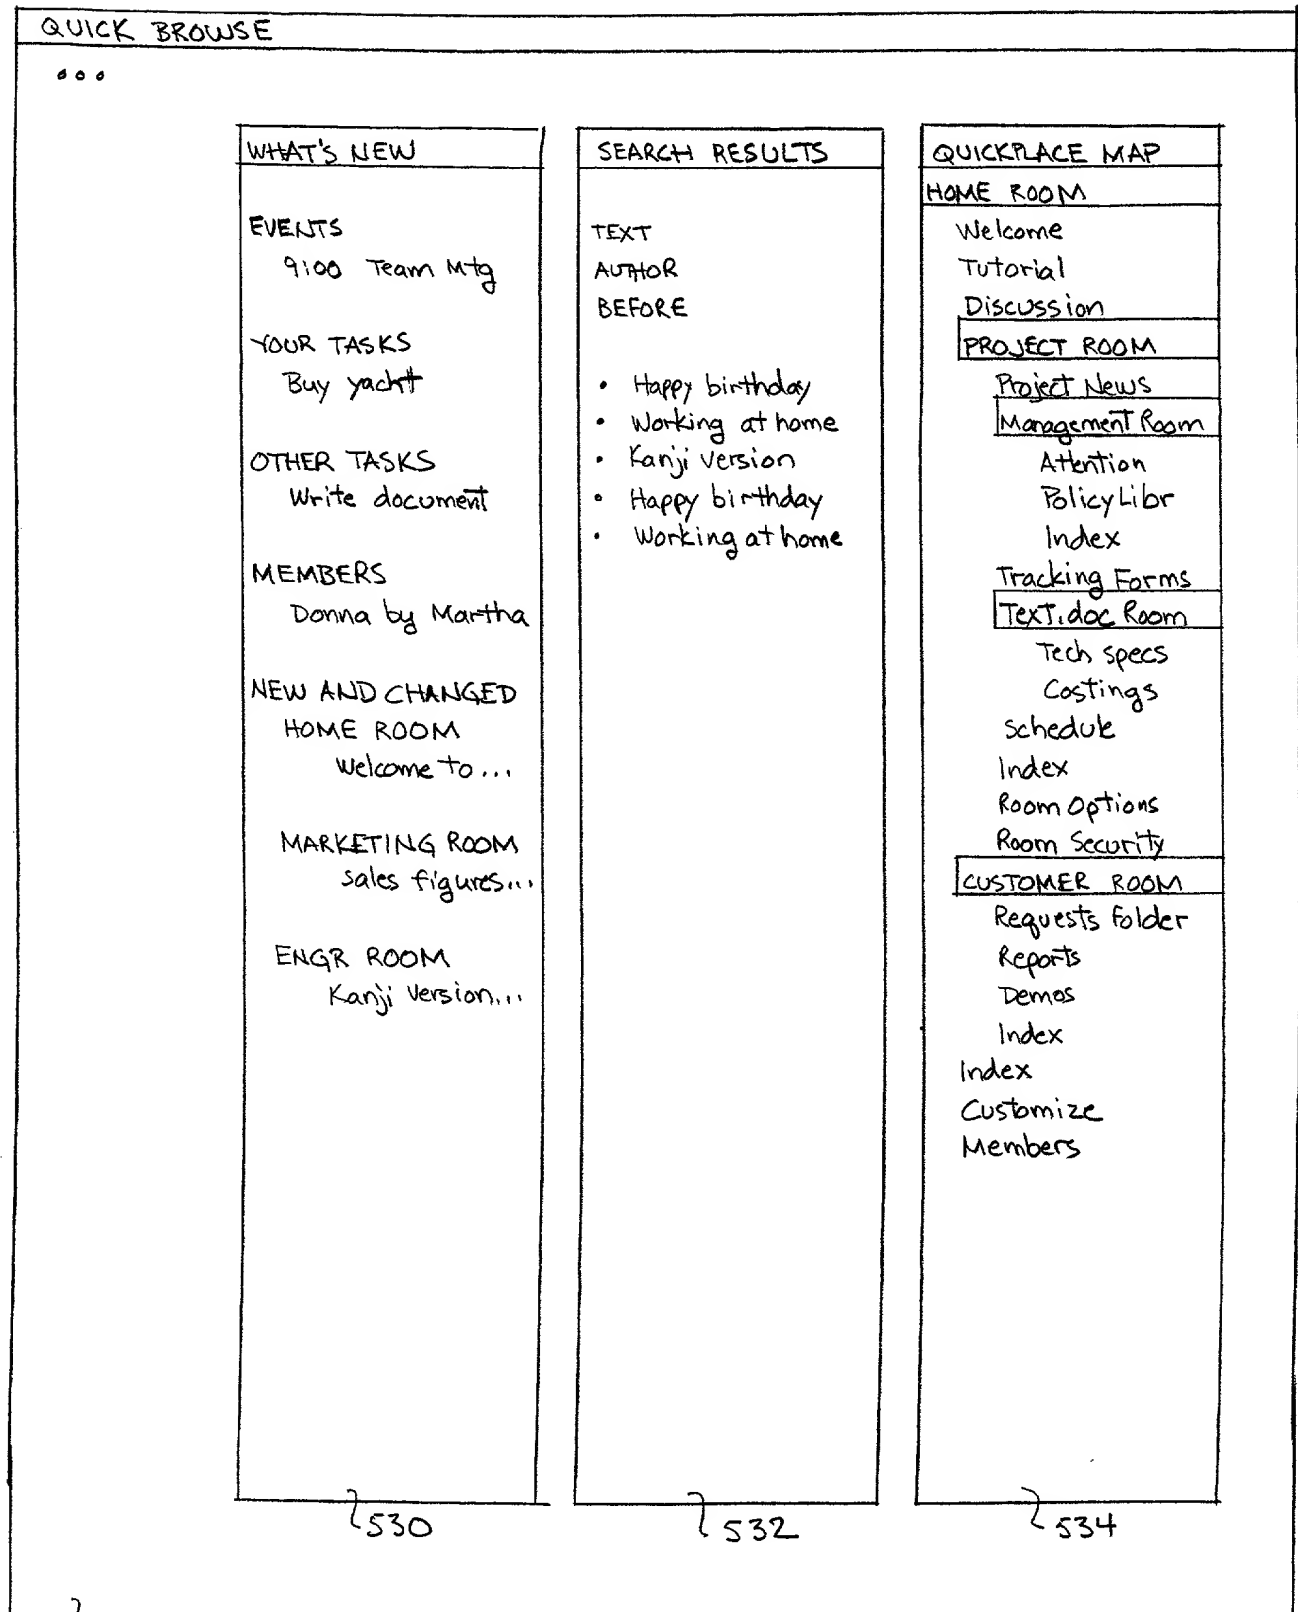 QUICK BROWSE
WHAT'S NEW
EVENTS
9:00 Team Mtg
YOUR TASKS
Buy yacht
OTHER TASKS
Write document
MEMBERS
Donna by Martha
NEW AND CHANGED
HOME ROOM
Welcome to...
MARKETING ROOM
Sales figures...
ENGR ROOM
Kanji Version...
530
SEARCH RESULTS
TEXT
AUTHOR
BEFORE
• Happy birthday
• Working at home
• Kanji version
• Happy birthday
• Working at home
532
QUICKPLACE MAP
HOME ROOM
Welcome
Tutorial
Discussion
PROJECT ROOM
Project News
Management Room
Attention
Policy Libr
Index
Tracking Forms
Text.doc Room
Tech specs
Costings
Schedule
Index
Room Options
Room Security
CUSTOMER ROOM
Requests Folder
Reports
Demos
Index
Index
Customize
Members
534